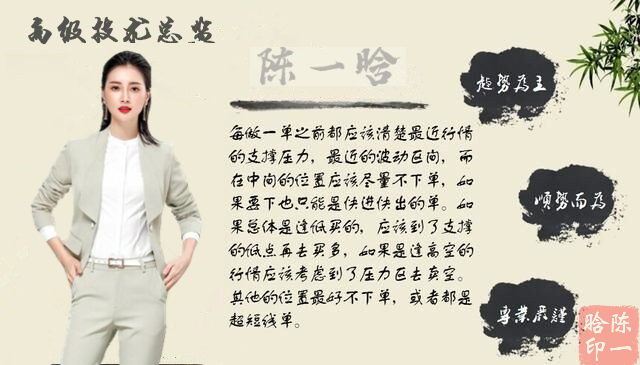 高级技术总监
陈一晗
每做一单之前都应该清楚最近行情
的支撑压力，最近的波动区间，而
在中间的位置应该尽量不下单，如
果要下也只能是快进快出的单。如
果总体是逢低买的，应该到了支撑
的低点再去买多，如果是逢高空的
行情应该考虑到了压力区去卖空。
其他的位置最好不下单，或者都是
超短线单。
趋勢為主
順勢而為
專業嚴謹
陈一
晗印